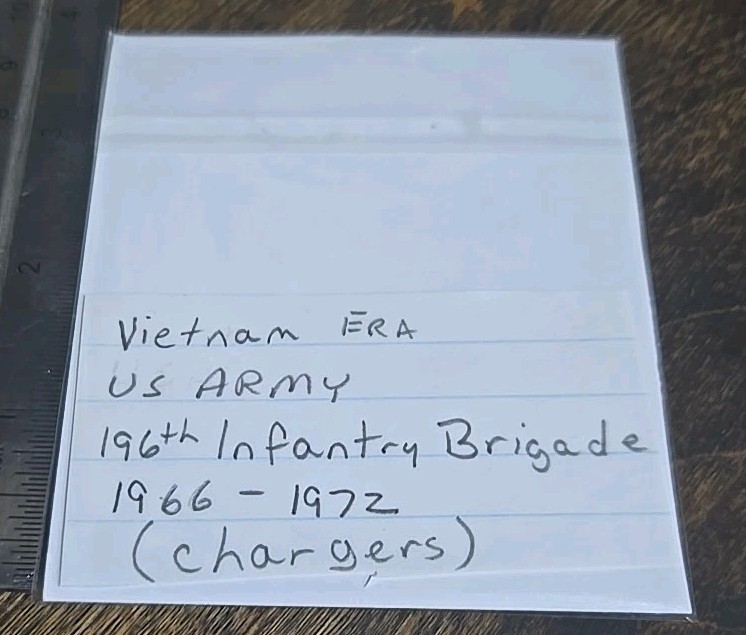 Vietnam ERA
US ARMY
196th Infantry Brigade
1966 - 1972
(chargers)
2